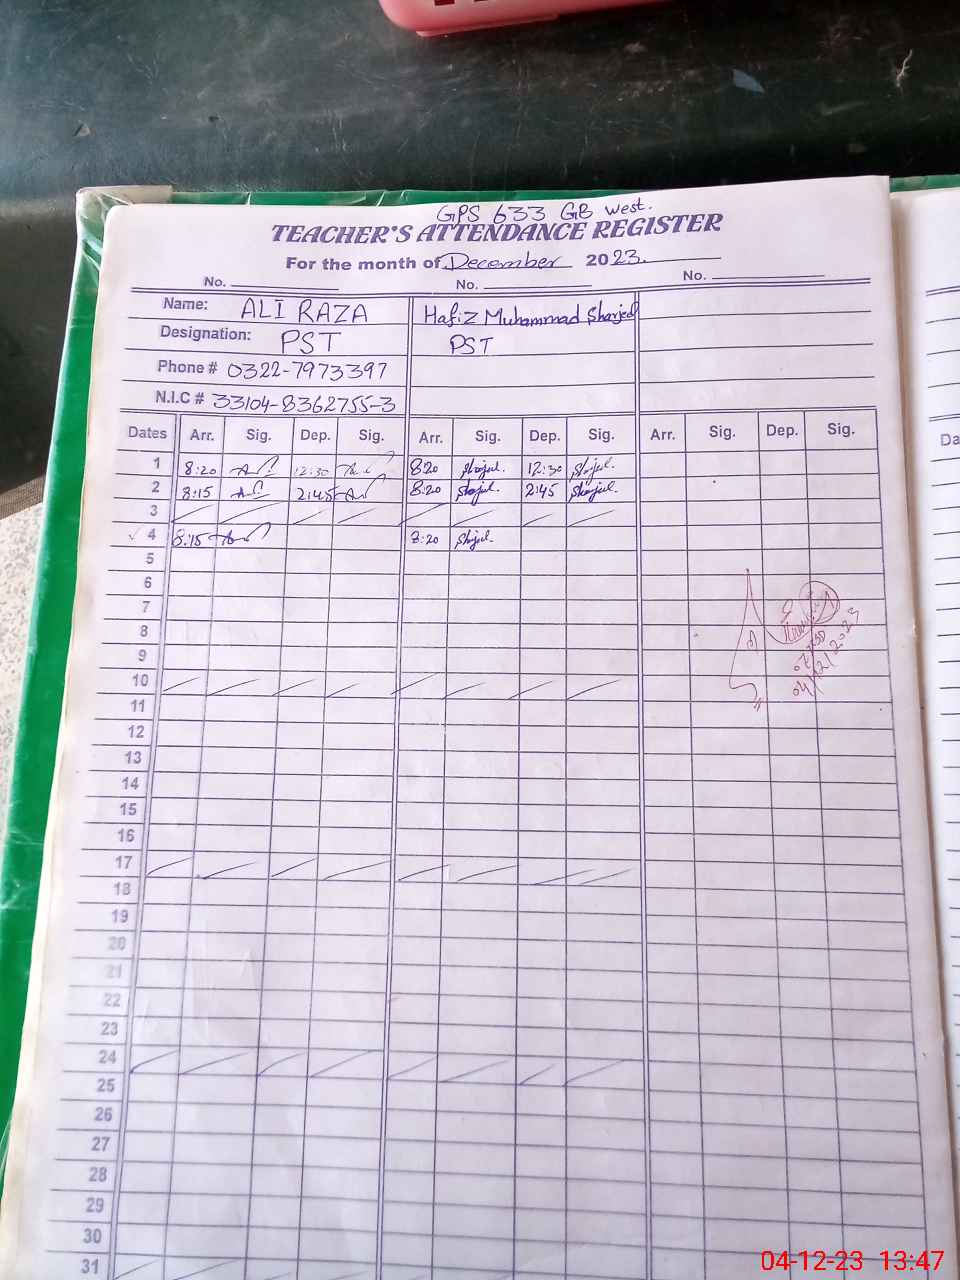 GPS 633 GB west.
TEACHER'S ATTENDANCE REGISTER
For the month of December 2023.
No. No. No.
Name: ALI RAZA Hafiz Muhammad Sharjeel
Designation: PST PST
Phone # 0322-7973397
N.I.C # 33104-8362755-3
Dates Arr. Sig. Dep. Sig. Arr. Sig. Dep. Sig. Arr. Sig. Dep. Sig.
1 8:20 12:30 8:20 Sharjeel. 12:30 Sharjeel.
2 8:15 2:45 8:20 Sharjeel. 2:45 Sharjeel.
3
4 8:15 8:20 Sharjeel.
5
6
7
8
9
04/12/2023
10
11
12
13
14
15
16
17
18
19
20
21
22
23
24
25
26
27
28
29
30
31
Da
04-12-23 13:47